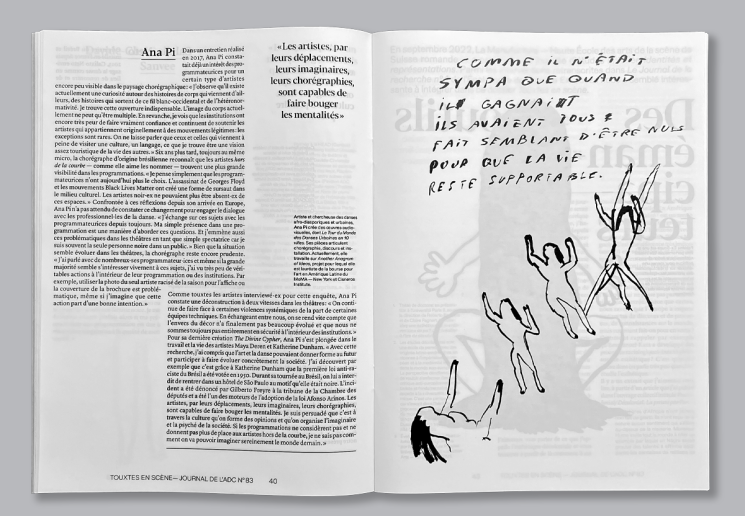 Ana Pi
Dans un entretien réalisé
en 2017, Ana Pi consta-
tait déjà un intérêt des pro-
grammateur·ices pour un
certain type d'artistes
encore peu visible dans le paysage chorégraphique : « J'observe qu'il existe
actuellement une curiosité autour des histoires de corps qui viennent d'ail-
leurs, des histoires qui sortent de ce fil blanc-occidental et de l'hétéronor-
mativité. Je trouve cette ouverture indispensable. L'image du corps actuel-
lement ne peut qu'être multiple. En revanche, je vois que les institutions ont
encore très peur de faire vraiment confiance et continuent de soutenir les
artistes qui appartiennent originellement à des mouvements légitimes : les
exceptions sont rares. On ne laisse parler que ceux et celles qui viennent à
peine de visiter une culture, un langage, ce que je trouve être une vision
assez touristique de la vies des autres. » Six ans plus tard, toujours au même
micro, la chorégraphe d'origine brésilienne reconnaît que les artistes hors
de la courbe — comme elle aime les nommer — trouvent une plus grande
visibilité dans les programmations. « Je pense simplement que les program-
mateurices n'ont aujourd'hui plus le choix. L'assassinat de Georges Floyd
et les mouvements Black Lives Matter ont créé une forme de sursaut dans
le milieu culturel. Les artistes noir·es ne pouvaient plus être absent·es de
ces espaces. » Confrontée à ces réflexions depuis son arrivée en Europe,
Ana Pi n'a pas attendu de constater ce changement pour engager le dialogue
avec les professionnel·les de la danse. « J'échange sur ces sujets avec les
programmateurices depuis toujours. Ma simple présence dans une pro-
grammation est une manière d'aborder ces questions. Et j'emmène aussi
ces problématiques dans les théâtres en tant que simple spectatrice car je
suis souvent la seule personne noire dans un public. » Bien que la situation
semble évoluer dans les théâtres, la chorégraphe reste encore prudente.
« J'ai parlé avec de nombreux·ses programmateur·ices et même si la grande
majorité semble s'intéresser vivement à ces sujets, j'ai vu très peu de véri-
tables actions à l'intérieur de leur programmation ou des institutions. Par
exemple, utiliser la photo du seul artiste racisé de la saison pour l'affiche ou
la couverture de la brochure est problé-
matique, même si j'imagine que cette
action part d'une bonne intention. »
Comme toutes les artistes interviewé·es pour cette enquête, Ana Pi
constate une déconstruction à deux vitesses dans les théâtres : « On conti-
nue de faire face à certaines violences systémiques de la part de certaines
équipes techniques. En échangeant entre nous, on se rend vite compte que
l'envers du décor n'a finalement pas beaucoup évolué et que nous ne
sommes toujours pas entièrement en sécurité à l'intérieur des institutions. »
Pour sa dernière création The Divine Cypher, Ana Pi s'est plongée dans le
travail et la vie des artistes Maya Deren et Katherine Dunham. « Avec cette
recherche, j'ai compris que l'art et la danse pouvaient donner forme au futur
et participer à faire évoluer concrètement la société. J'ai découvert par
exemple que c'est grâce à Katherine Dunham que la première loi anti-ra-
ciste du Brésil a été votée en 1950. Durant sa tournée au Brésil, on lui a inter-
dit de rentrer dans un hôtel de São Paulo au motif qu'elle était noire. L'inci-
dent a été dénoncé par Gilberto Freyre à la tribune de la Chambre des
députés et a été l'un des moteurs de l'adoption de la loi Afonso Arinos. Les
artistes, par leurs déplacements, leurs imaginaires, leurs chorégraphies,
sont capables de faire bouger les mentalités. Je suis persuadé que c'est à
travers la culture qu'on forme des opinions et qu'on organise l'imaginaire
et la psyché de la société. Si les programmations ne considèrent pas et ne
donnent pas plus de place aux artistes hors de la courbe, je ne sais pas com-
ment on va pouvoir imaginer sereinement le monde demain. »
« Les artistes, par
leurs déplacements,
leurs imaginaires,
leurs chorégraphies,
sont capables de
faire bouger
les mentalités »
Artiste et chercheuse des danses
afro-diasporiques et urbaines,
Ana Pi crée des œuvres audio-
visuelles, dont Le Tour du Monde
des Danses Urbaines en 10
villes. Ses pièces articulent
chorégraphie, discours et ins-
tallation. Actuellement, elle
travaille sur Another Anagram
of Ideas, projet pour lequel elle
est lauréate de la bourse pour
l'art en Amérique Latine du
MoMA — New York et Cisneros
Institute.
TOUXTES EN SCÈNE — JOURNAL DE L'ADC N°83
40
COMME IL N'ÉTAIT
SYMPA QUE QUAND
IL GAGNAIT
ILS AVAIENT TOUS
FAIT SEMBLANT D'ÊTRE NULS
POUR QUE LA VIE
RESTE SUPPORTABLE.